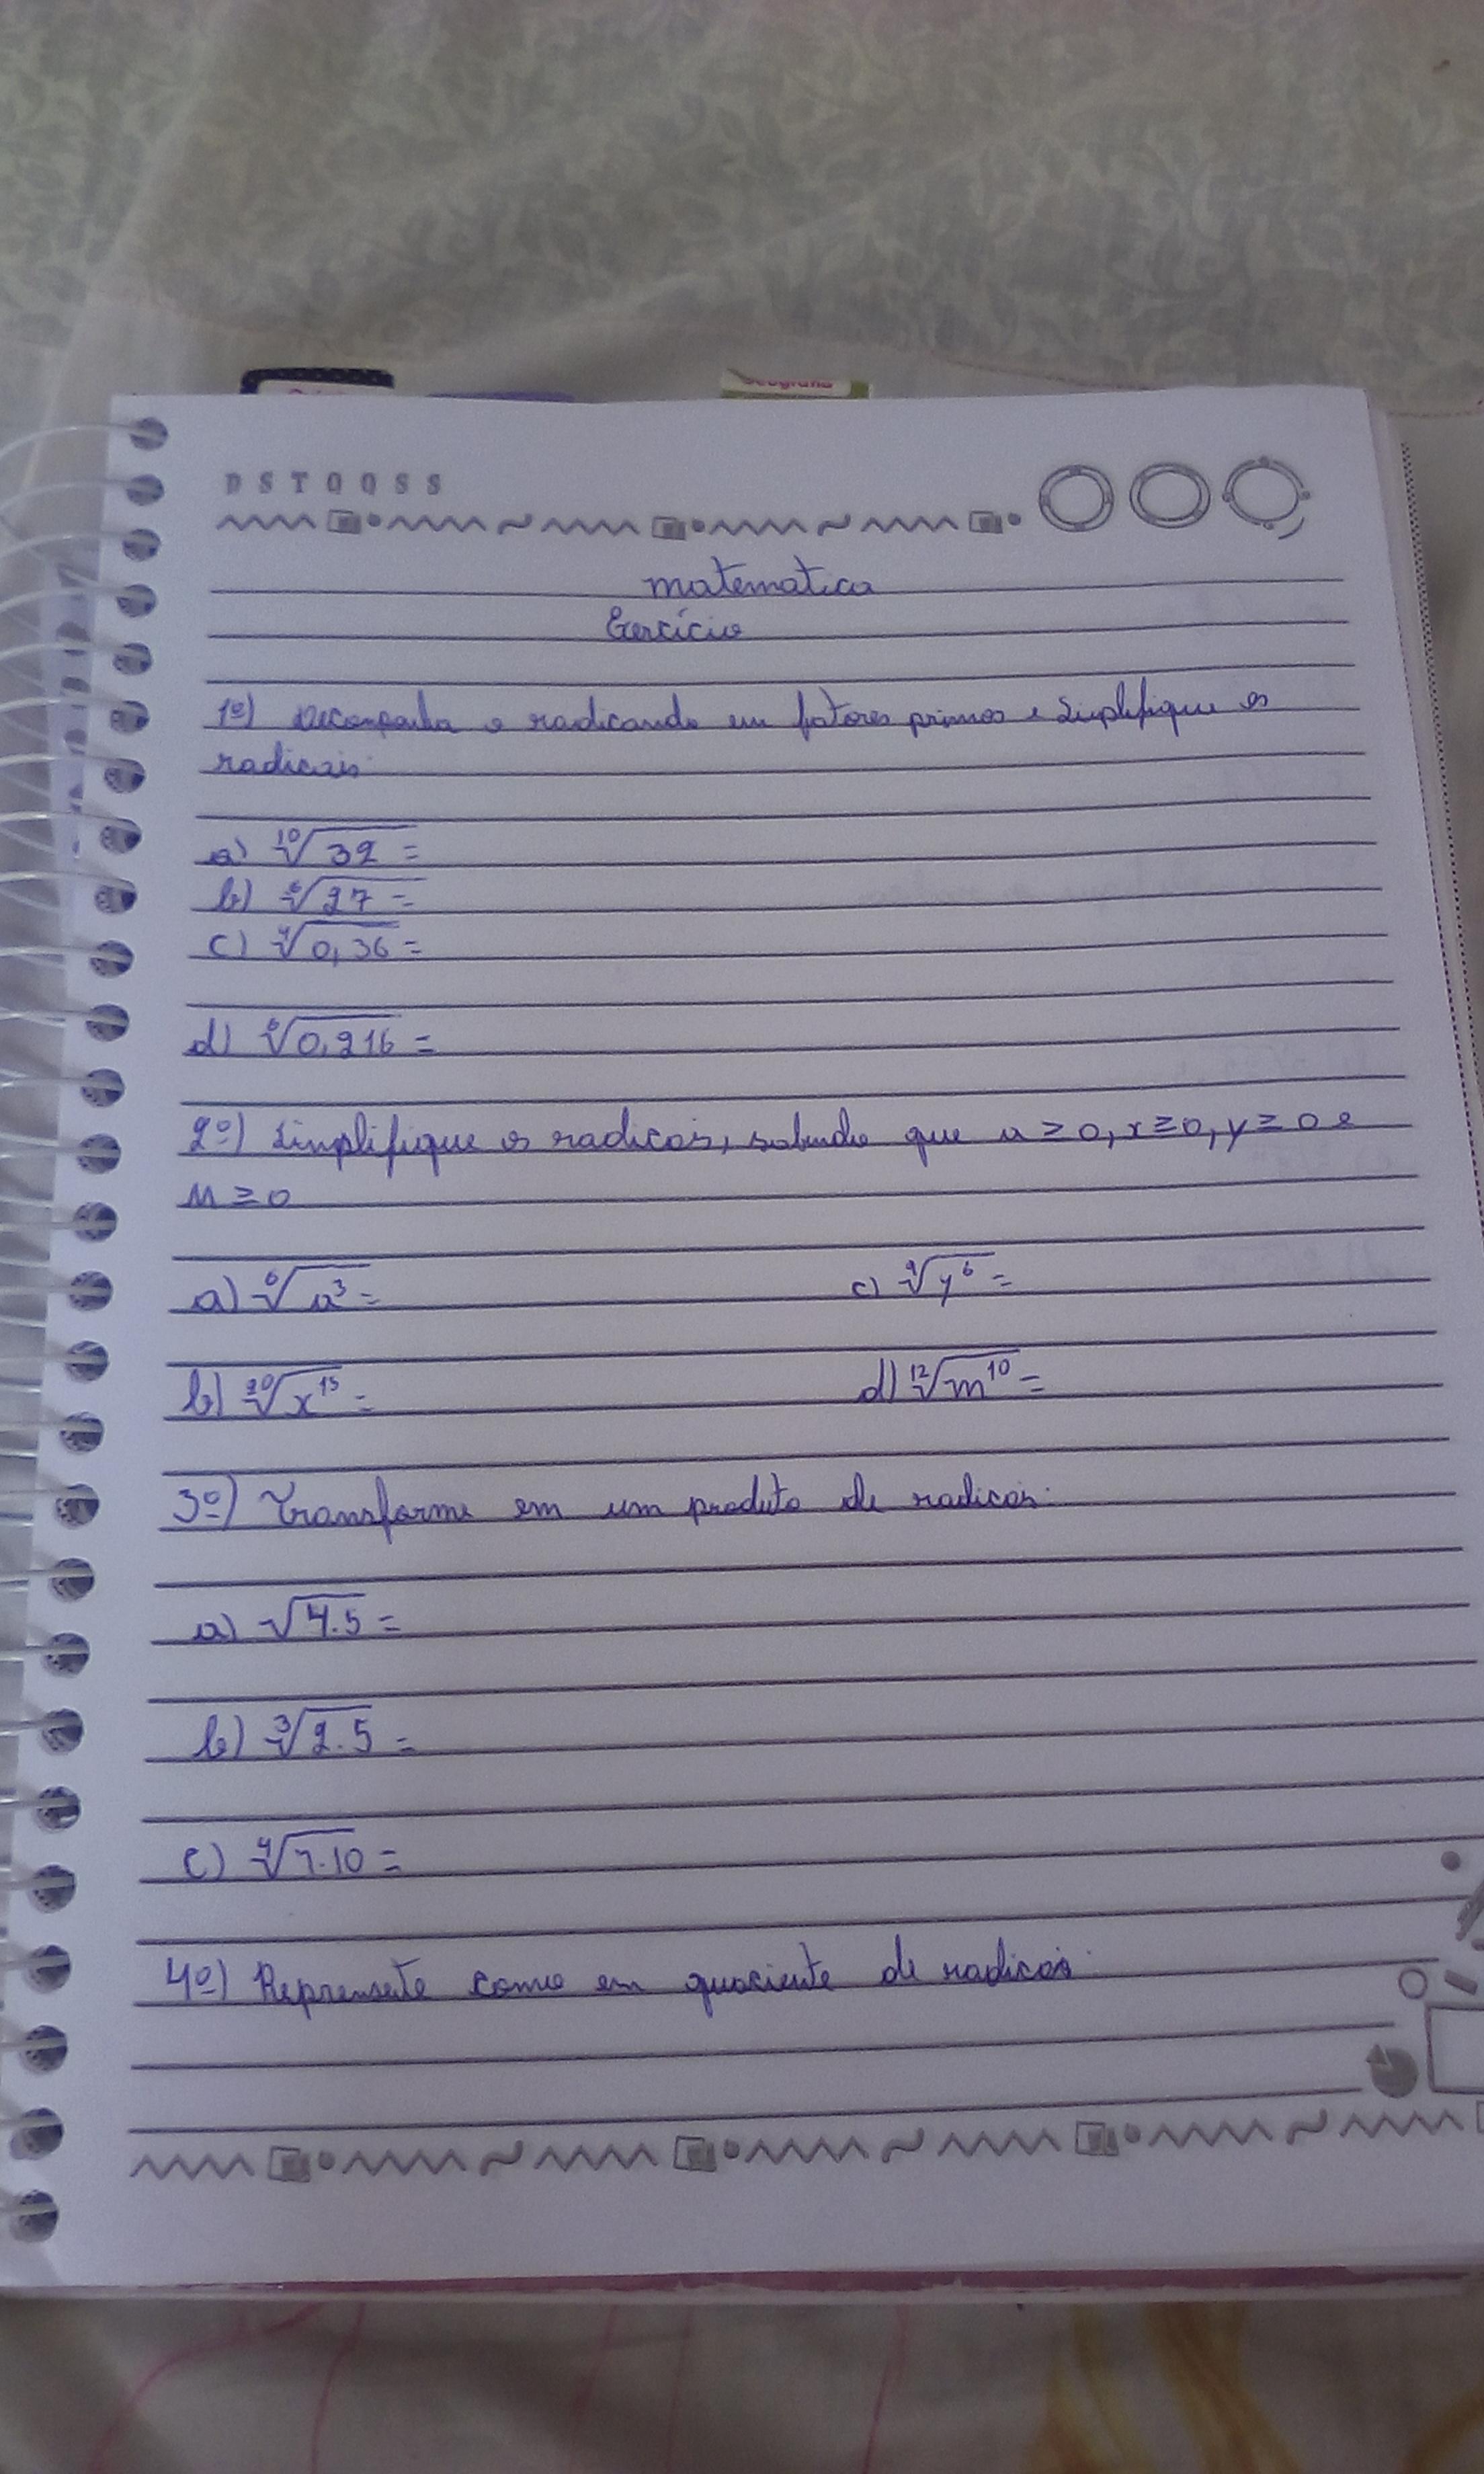 Geografia
D S T Q Q S S
matematica
Exercício
1º) Decomponha o radicando em fatores primos e simplifique os
radicais
a) ¹⁰√32 =
b) ⁶√27 =
c) ⁴√0,36 =
d) ⁶√0,216 =
2º) Simplifique os radicais, sabendo que a ≥ 0, x ≥ 0, y ≥ 0 e
M ≥ 0
a) ⁶√a³ =
c) ⁹√y⁶ =
b) ²⁰√x¹⁵ =
d) ¹²√m¹⁰ =
3º) Transforme em um produto de radicais.
a) √4.5 =
b) ³√2.5 =
c) ⁴√7.10 =
4º) Represente como em quociente de radicais.